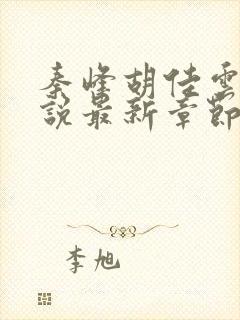 秦峰胡佳雲
說最新章節
李旭